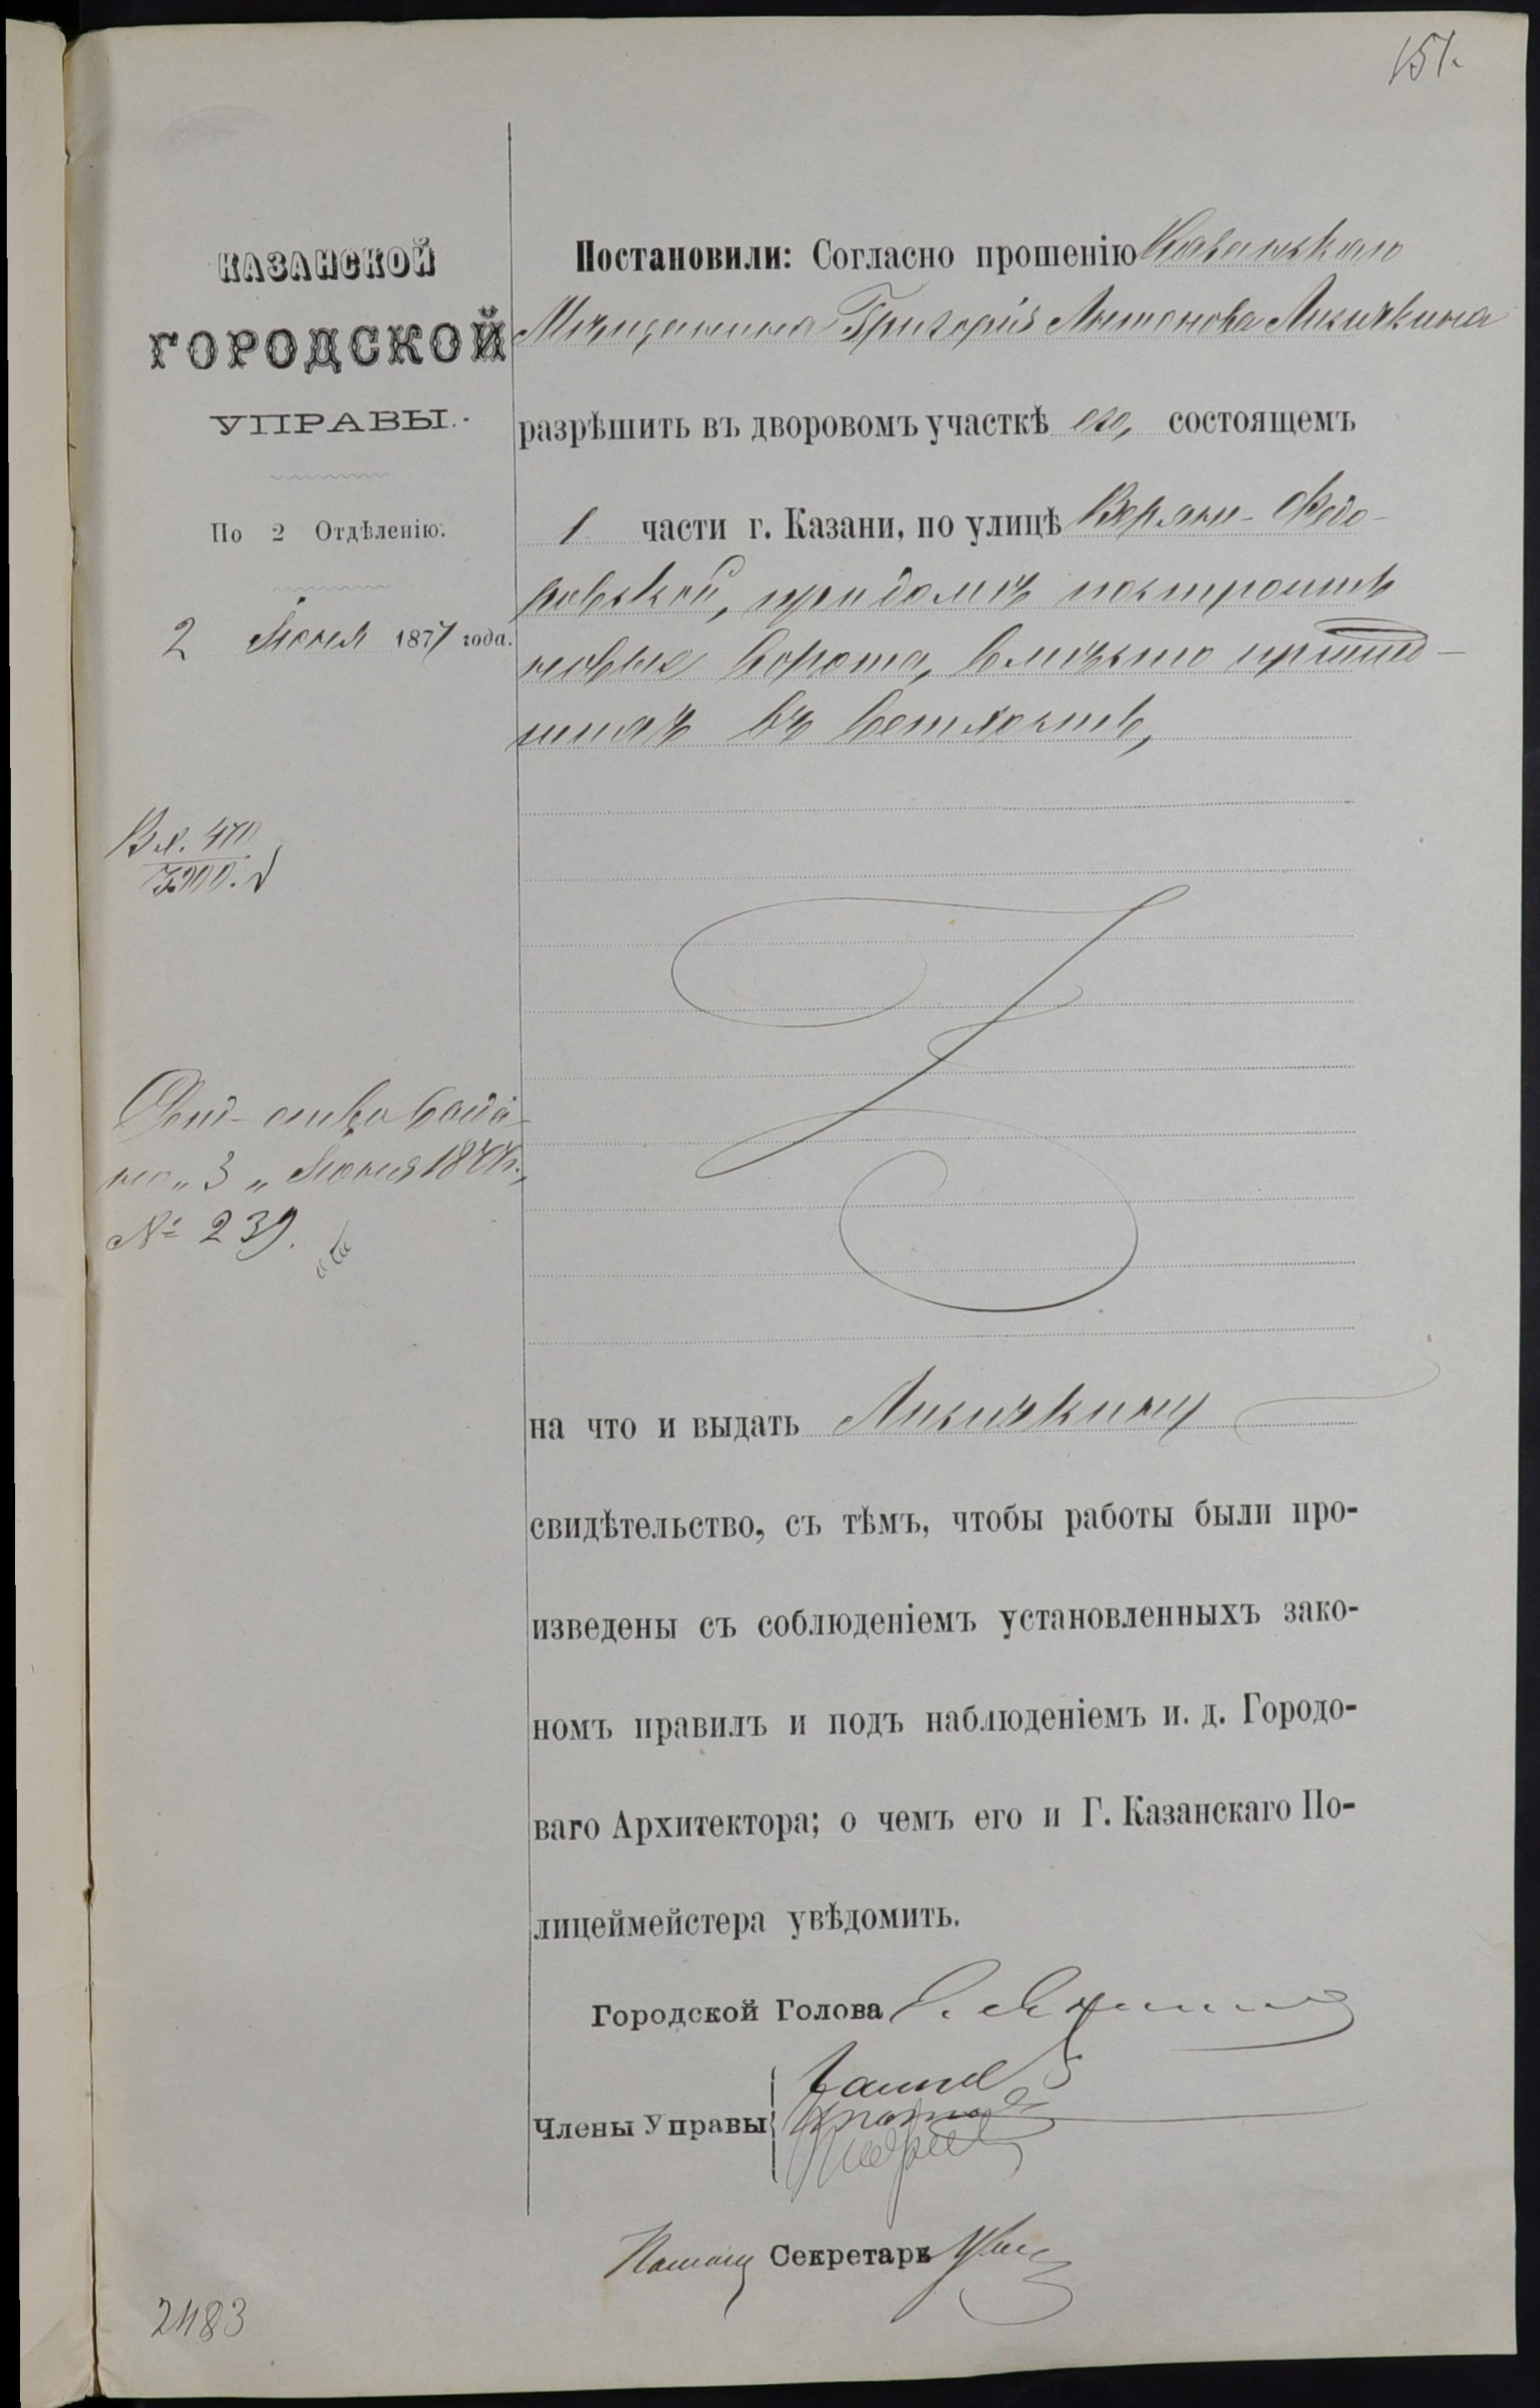 151.
КАЗАНСКОЙ
ГОРОДСКОЙ
УПРАВЫ.
По 2 Отдѣленію.
2 Іюня 1877 года.
Вх. 470
7300.
Свид-ство выда-
но „3„ Іюня 1877 г.,
№ 239.
Постановили: Согласно прошенію Казанскаго
Мѣщанина Григорія Антонова Лисичкина
разрѣшить въ дворовомъ участкѣ его, состоящемъ
1 части г. Казани, по улицѣ Верхне-Ѳедо-
ровской, при домѣ построить
новыя ворота, вмѣсто пришед-
шихъ въ ветхость,
на что и выдать Лисичкину
свидѣтельство, съ тѣмъ, чтобы работы были про-
изведены съ соблюденіемъ установленныхъ зако-
номъ правилъ и подъ наблюденіемъ и. д. Городо-
ваго Архитектора; о чемъ его и Г. Казанскаго По-
лицеймейстера увѣдомить.
Городской Голова
Члены Управы
Помощ Секретарь
2483